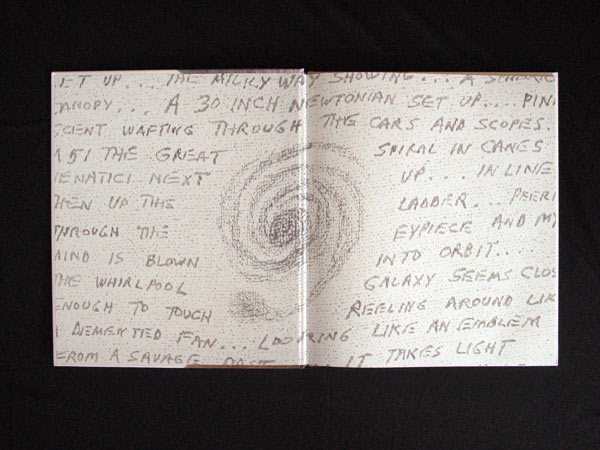 ET UP.... THE MILKY WAY SHOWING... A
CANOPY... A 30 INCH NEWTONIAN SET UP.... PIN
SCENT WAFTING THROUGH THE CARS AND SCOPES.
M51 THE GREAT SPIRAL IN CANES
ENATICI NEXT UP... IN LINE
THEN UP THE LADDER... PEERI
THROUGH THE EYPIECE AND MY
MIND IS BLOWN INTO ORBIT...
THE WHIRLPOOL GALAXY SEEMS CLOS
ENOUGH TO TOUCH REELING AROUND LIK
A DEMENTED FAN... LOOMING LIKE AN EMBLEM
FROM A SAVAGE PAST... IT TAKES LIGHT